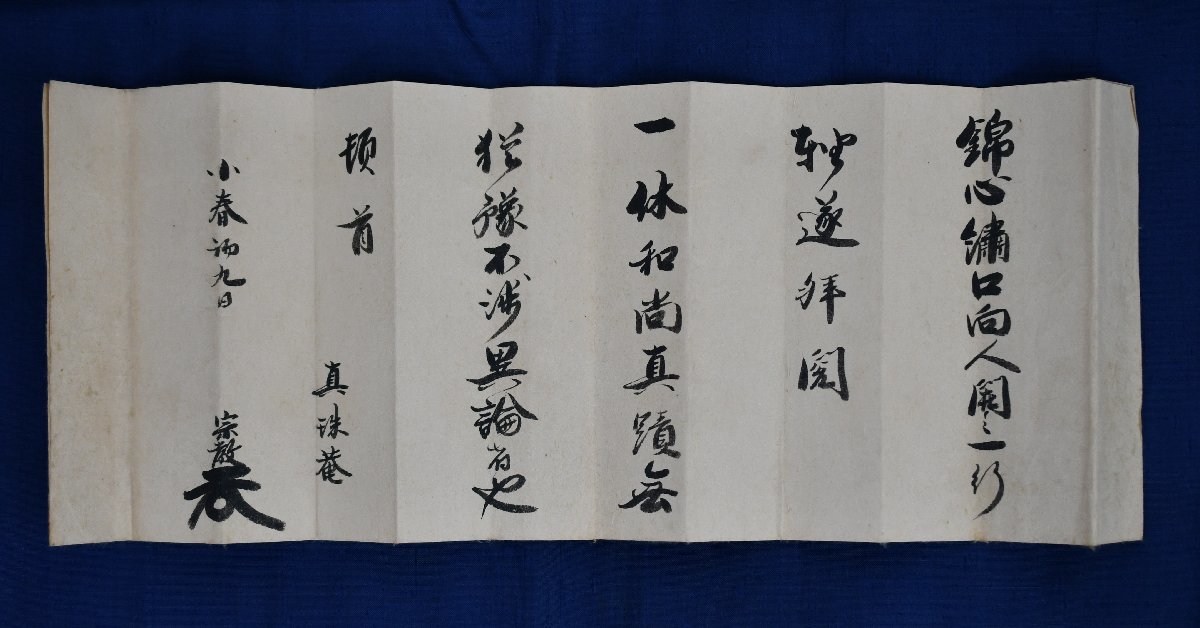 錦心繡口向人開之一行
軸遂拜閲
一休和尚真蹟無
猶豫不渉異論者也
頓首
真珠菴
小春初九日
宗